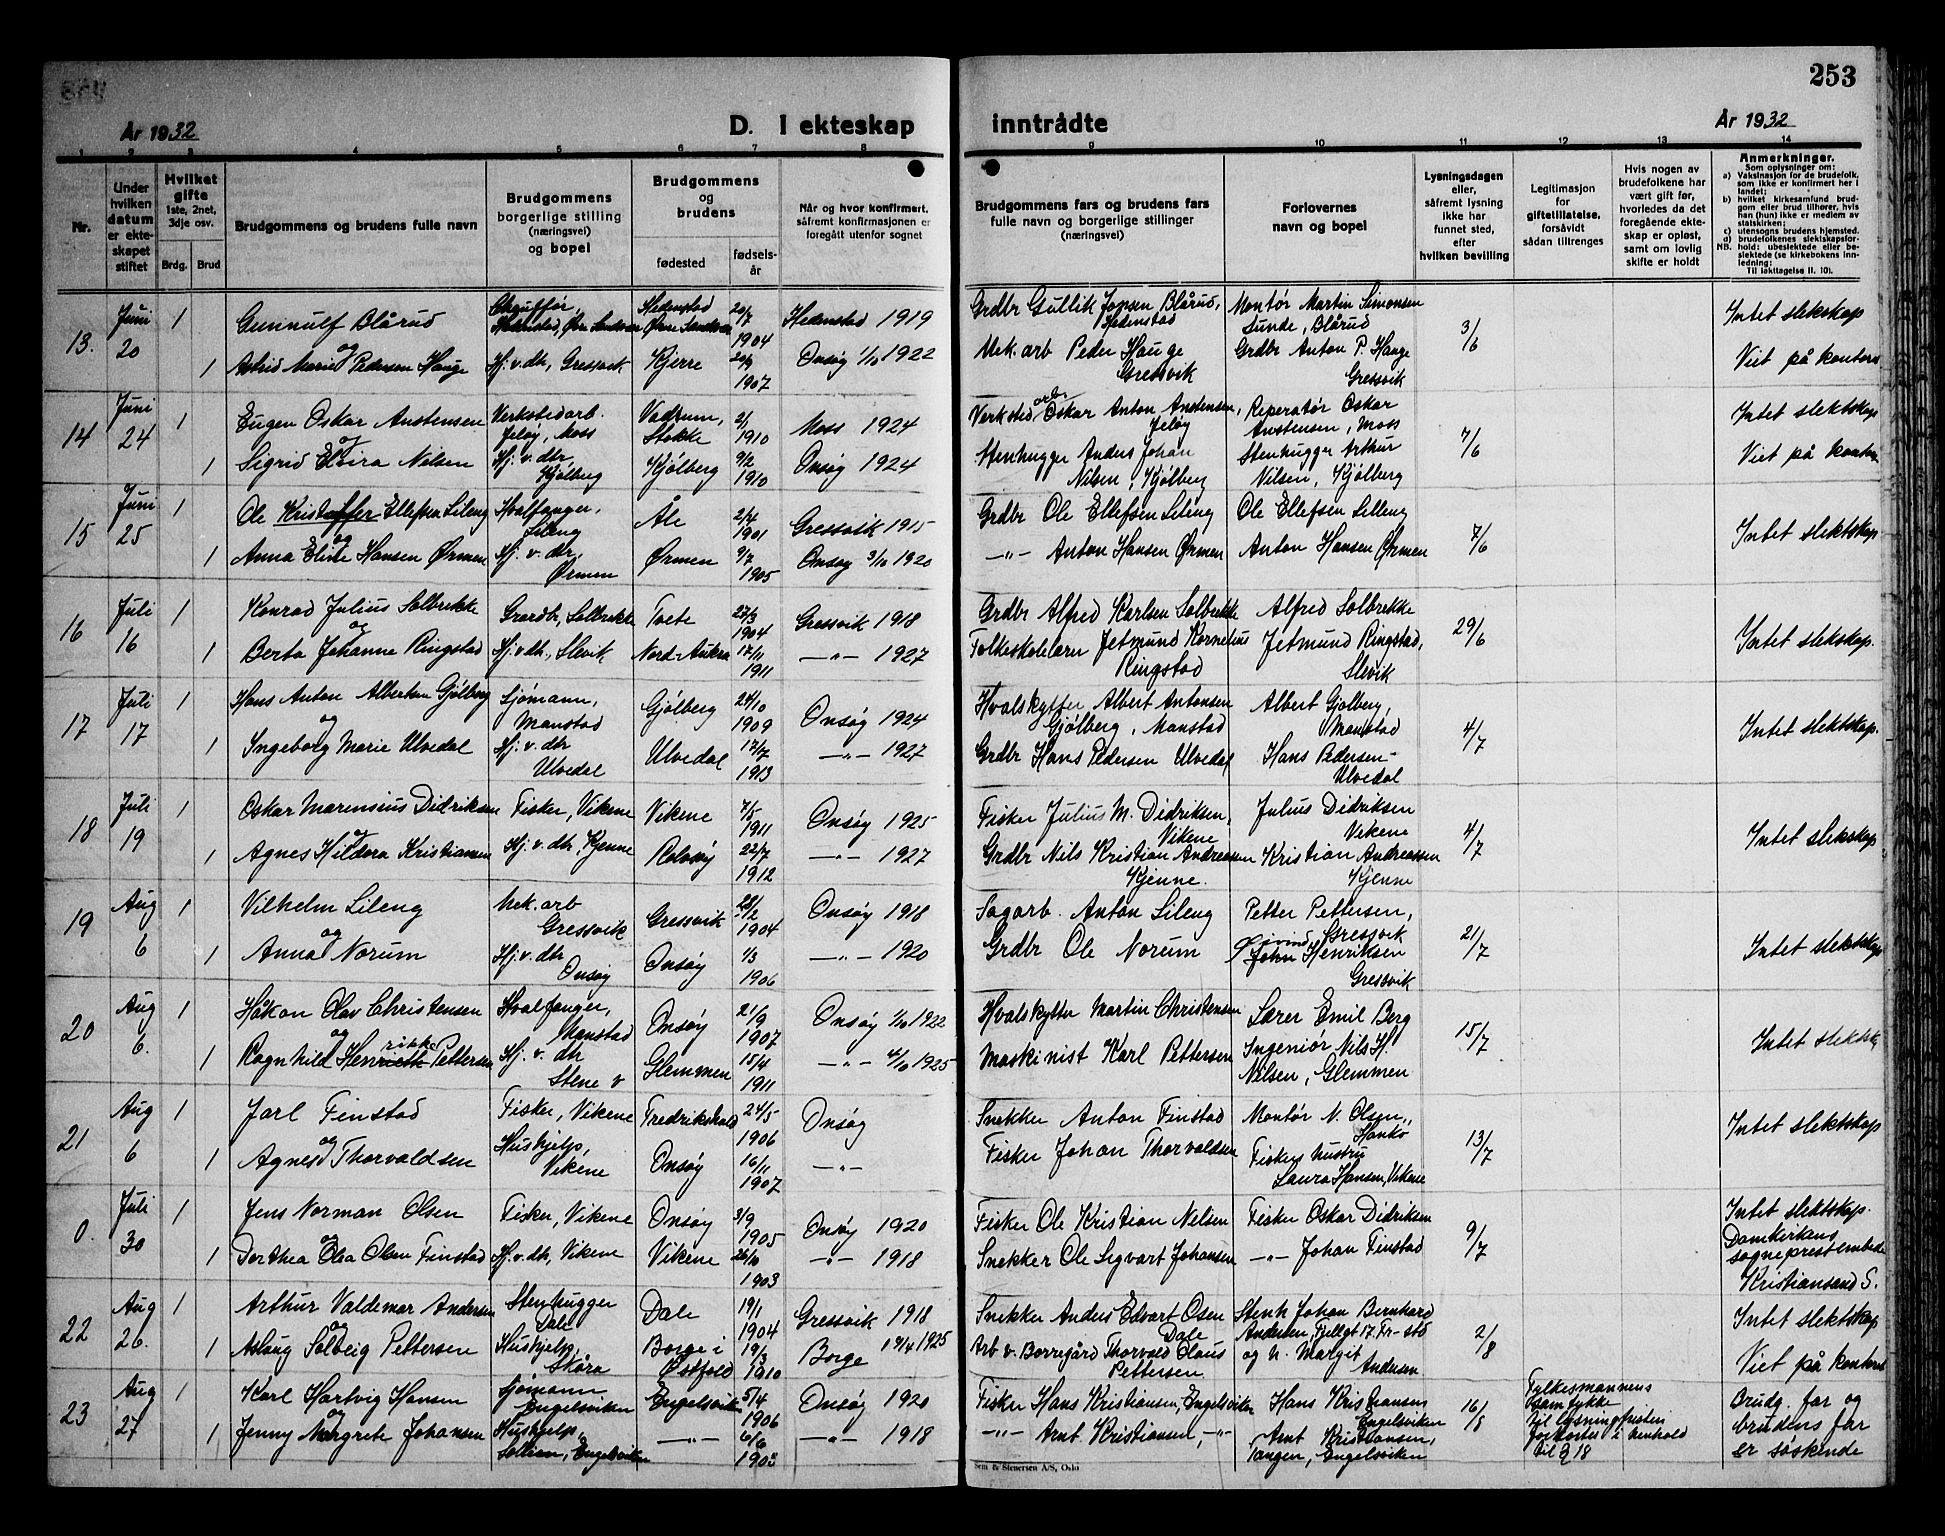 253
År 1932
D. I ekteskap inntrådte
År 1932
1 2 3 4 5 6 7 8 9 10 11 12 13 14
Nr.
Under hvilken datum er ekteskapet stiftet
Hvilket gifte 1ste, 2net, 3dje osv.
Brdg. Brud
Brudgommens og brudens fulle navn
Brudgommens borgerlige stilling (næringsvei) og bopel
Brudgommens og brudens
fødested
fødselsår
Når og hvor konfirmert, såfremt konfirmasjonen er foregått utenfor sognet
Brudgommens fars og brudens fars fulle navn og borgerlige stillinger (næringsvei)
Forlovernes navn og bopel
Lysningsdagen eller, såfremt lysning ikke har funnet sted, efter hvilken bevilling
Legitimasjon for giftetillatelse, forsåvidt sådan tiltrenges
Hvis nogen av brudefolkene har vært gift før, hvorledes da det foregående ekteskap er opløst, samt om lovlig skifte er holdt
Anmerkninger.
Som oplysninger om:
a) Vaksinasjon for de brudefolk, som ikke er konfirmert her i landet;
b) hvilket kirkesamfund brudgom eller brud tilhører, hvis han (hun) ikke er medlem av statskirken;
c) utensogns brudens hjemsted.
d) brudefolkenes slektskapsforhold: ubeslektede eller beslektede (se kirkebokens innledning;
NB. Til iakttagelse II. 10).
13. Juni 20 1 Gunnulf Blårud Hedenstad 20/7 1904 Hedenstad 1919 Grdbr Gullik Jonsen Blårud, Hedenstad Montør Martin Simonsen Sunde, Blårud 3/6 Intet slektskap
og
1 Astrid Marie Pedersen Hauge Hj.v.dh, Gressvik Kjerre 20/9 1907 Onsøy 1/10 1922 Mek. arb Peder Hauge Gressvik Grdbr Anton P. Hauge Gressvik Viet på kontoret
14 Juni 24 1 Eugen Oskar Anstensen Verkstedarb. Jeløy, Moss Stokke 2/1 1910 Moss 1924 Verkstedarb. Oskar Anton Anstensen, Jeløy Reperatør Oskar Anstensen, Moss 7/6 Intet slektskap
og
1 Sigrid Elvira Nilsen Hj. v. dtr Kjølberg Kjølberg 9/2 1910 Onsøy 1924 Stenhugger Anders Johan Nilsen, Kjølberg Stenhugger Arthur Nilsen, Kjølberg Viet på kontor
15 Juni 25 1 Ole Kristoffer Ellefsen Lileng Hvalfanger, Lileng Åle 2/4 1901 Gressvik 1915 Grdbr Ole Ellefsen Lileng Ole Ellefsen Lileng 7/6 Intet slektskap
og
1 Anna Eline Hansen Ørmen Hj. v. dr. Ørmen Ørmen 9/7 1905 Onsøy 3/10 1920 -"- Anton Hansen Ørmen Anton Hansen Ørmen
16 Juli 16 1 Konrad Julius Solbrekke Grdbr, Solbrekke Tvete 27/3 1904 Gressvik 1918 Grdbr Alfred Karlsen Solbrekke Alfred Solbrekke 29/6 Intet slektskap.
og
1 Berta Johanne Ringstad Hj.v.dh., Slevik Nord-Aukra 17/11 1911 -"- 1927 Folkeskolelærer Jetmund Kornelius Ringstad Jetmund Ringstad, Slevik
17 Juli 17 1 Hans Anton Albertsen Gjølberg Sjømann, Manstad Gjølberg 24/10 1909 Onsøy 1924 Hvalskytter Albert Antonsen Gjølberg, Manstad Albert Gjølberg, Manstad 4/7 Intet slektskap.
og
1 Ingeborg Marie Ulvedal Hj. v. dtr Ulvedal Ulvedal 17/7 1913 -"- 1927 Grdbr Hans Pedersen Ulvedal Hans Pedersen Ulvedal
18 Juli 19 1 Oskar Marensius Didriksen Fisker, Vikene Vikene 7/5 1911 Onsøy 1925 Fisker Julius M. Didriksen, Vikene Julius Didriksen Vikene 4/7 Intet slektskap
og
1 Agnes Hildora Kristiansen Hj. v. dtr Kjenne Rolvsøy 22/7 1912 -"- 1927 Grdbr Nils Kristian Andreassen Kjenne. Kristian Andreassen Kjenne
19 Aug 6 1 Vilhelm Lileng Mek. arb Gressvik Gressvik 1904 Onsøy 1918 Sagarb. Anton Lileng Petter Pettersen, Gressvik 21/7
og
1 Anna Norum Hj. v. dtr Onsøy Onsøy 1/3 1906 -"- 1920 Grdbr Ole Norum Øivind John Henriksen Gressvik Intet slektskap
20 Aug 6. 1 Håkon Olav Christensen Hvalfanger, Manstad Onsøy 21/9 1907 Onsøy 1/10 1922 Hvalskytter Martin Christensen Lærer Emil Berg 15/7 Intet slektsk
og
1 Ragnhild Henrikke Pettersen Hj. v. dtr Stene v Glemmen 15/4 1911 -"- 4/10 1925 Maskinist Karl Pettersen Ingeniør Nils H. Nilsen, Glemmen
21 Aug 6 1 Jarl Finstad Fisker, Vikene Fredrikshald 24/5 1906 Onsøy Snekker Anton Finstad Montør N. Olsen, Hankø 13/7 Intet slektskap
og
1 Agnes Thorvaldsen Hushjelp, Vikene Onsøy 16/11 1907 -"- Fisker Johan Thorvaldsen Fiskers hustru Laura Hansen, Vikene
0. Juli 30 1 Jens Norman Olsen Fisker, Vikene Onsøy 3/9 1905 Onsøy 1920 Fisker Ole Kristian Nelsen Fisker Oskar Didriksen 9/7 Intet slektskap.
og
1 Dorthea Elsa Olsen Finstad Hj. v. dh, Vikene Vikene 26/10 1903 -"- 1918 Snekker Ole Sigvart Johansen -"- Johan Finstad Domkirkens sogneprestembede Kristiansand S.
22 Aug 26. 1 Arthur Valdemar Andersen Stenhugger Dale Dale 19/1 1904 Gressvik 1918 Snekker Anders Edvart Osen Dale Stenh Johan Bernhard Andersen, Fjellgt 17 Fr-stð 2/8 Intet slektskap
og
1 Aslaug Solveig Pettersen Hushjelp, Skåra Borge i Østfold 19/3 1910 Borge 19/4 1925 Arb v. Borregård Thorvald Claus Pettersen og h. Margit Andersen Viet på kontoret
23 Aug 27 1 Karl Hartvig Hansen Sjømann Engelsviken Engelsviken 5/4 1906 Onsøy 1920 Fisker Hans Kristiansen, Engelsviken Hans Kristiansen Engelsviken 16/8 Fylkesmannens samtykke til lysningsfristen til Brudg. far og brudens far er søskende
og
1 Jenny Margrete Johansen Hushjelp, Engelsviken -"- 6/6 -"- 1918 -"- Arnt Kristiansen, -"- Arnt Kristiansen, Tangen, Engelsviken
Sem & Stenersen A/S, Oslo